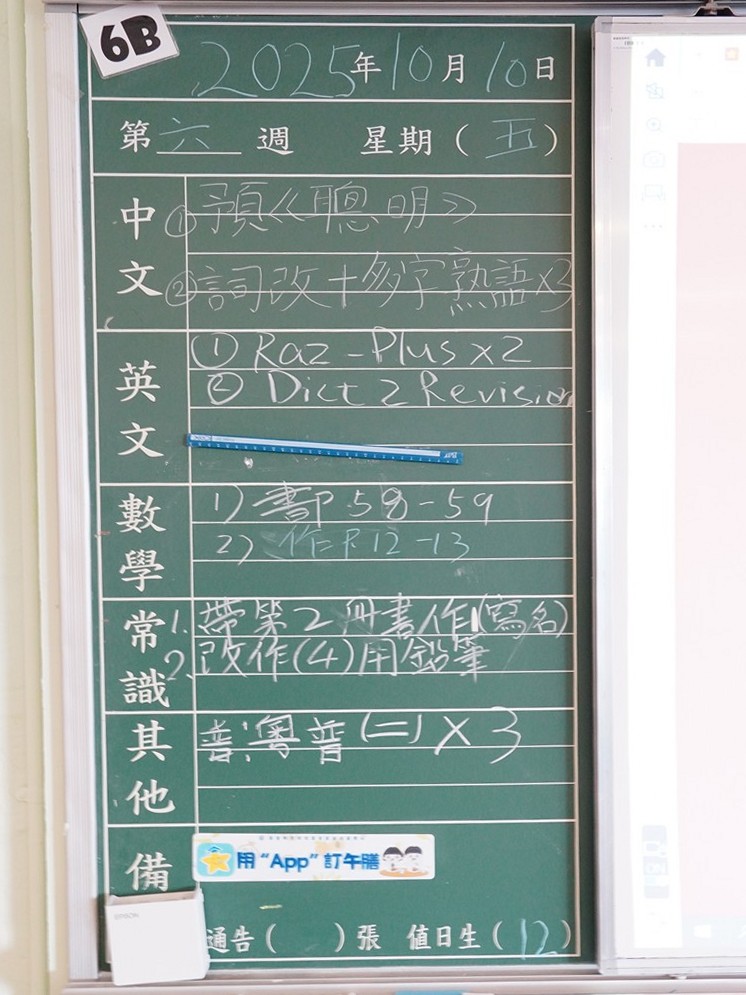 6B
2025年10月10日
第六週 星期(五)
中文
①預《聰明》
②詞改+多字熟語x3
英文
① Raz-Plus x2
② Dict 2 Revision
數學
1) 書P.58-59
2) 作P.12-13
常識
1. 帶第2冊書作(寫名)
2. 改作(4)用鉛筆
其他
普:粵普(二) x 3
備
用“App”訂午膳
EPSON
通告( )張 值日生(12)